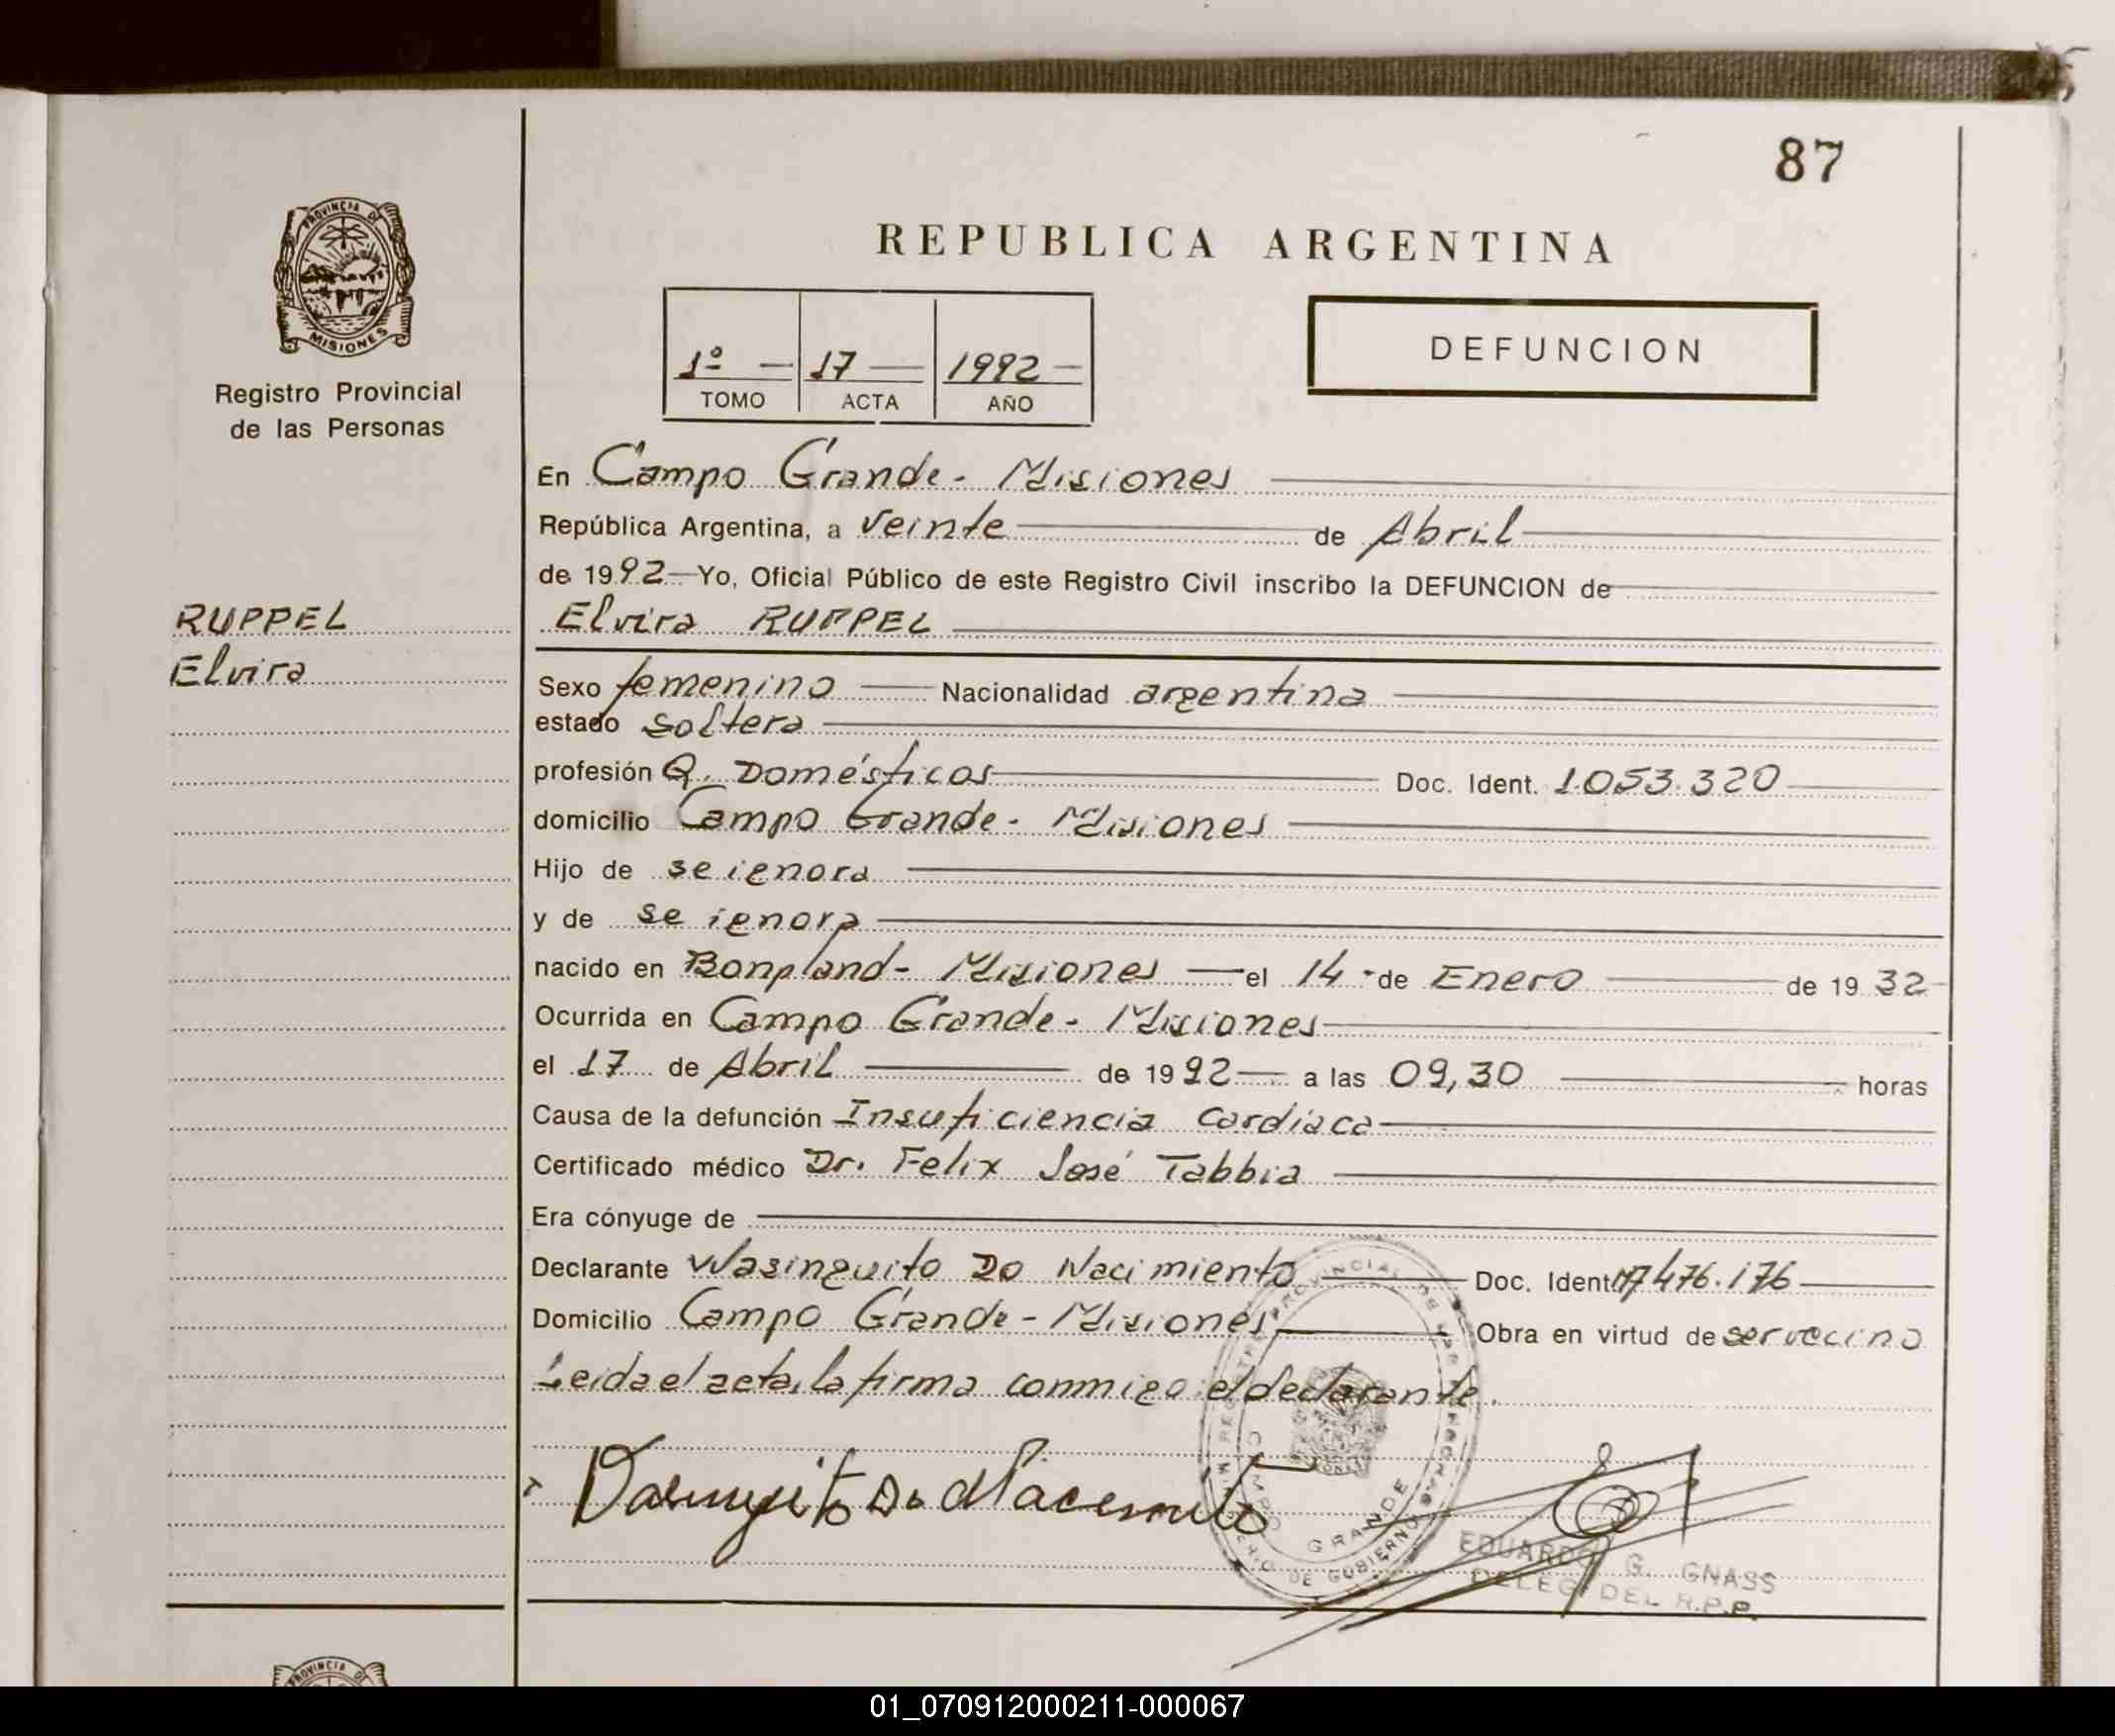 87
PROVINCIA DE
MISIONES
Registro Provincial
de las Personas
REPUBLICA ARGENTINA
1º — 17 — 1992 —
TOMO ACTA AÑO
DEFUNCION
RUPPEL
Elvira
En Campo Grande - Misiones
República Argentina, a veinte de Abril
de 1992 — Yo, Oficial Público de este Registro Civil inscribo la DEFUNCION de
Elvira RUPPEL
Sexo femenino — Nacionalidad argentina
estado soltera
profesión Q. Domésticos Doc. Ident. 1.053.320
domicilio Campo Grande - Misiones
Hijo de se ignora
y de se ignora
nacido en Bonpland - Misiones — el 14 - de Enero de 1932
Ocurrida en Campo Grande - Misiones
el 17 de Abril de 1992 — a las 09,30 horas
Causa de la defunción Insuficiencia cardíaca
Certificado médico Dr. Felix José Tabbia
Era cónyuge de
Declarante Wasinguito Do Nacimiento Doc. Ident. 17476.176
Domicilio Campo Grande - Misiones Obra en virtud de ser vecino
Leida el acta, la firma conmigo el declarante.
CAMPO GRANDE
EDUARDO G. GNASS
DELEG. DEL R.P.P.
PROVINCIA DE
01_070912000211-000067